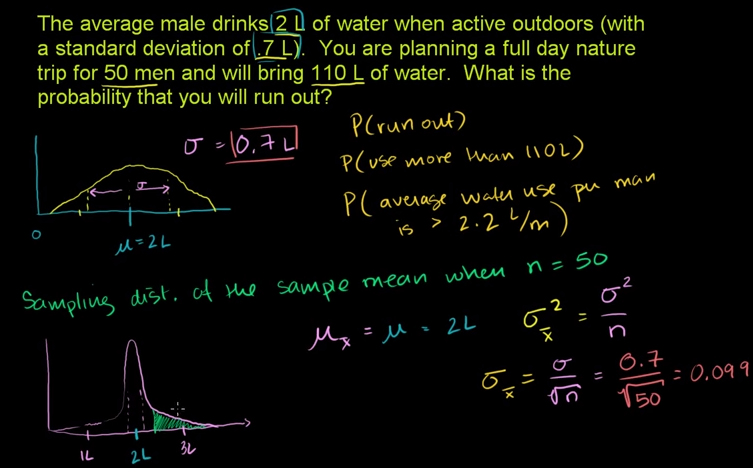 The average male drinks 2 L of water when active outdoors (with
a standard deviation of .7 L). You are planning a full day nature
trip for 50 men and will bring 110 L of water. What is the
probability that you will run out?
σ = 0.7 L
P(run out)
P(use more than 110L)
P(average water use per man
is > 2.2 L/m)
σ
0
μ = 2L
Sampling dist. of the sample mean when n = 50
μ_x̄ = μ = 2L
σ_x̄² = σ²/n
σ_x̄ = σ/√n = 0.7/√50 = 0.099
1L 2L 3L